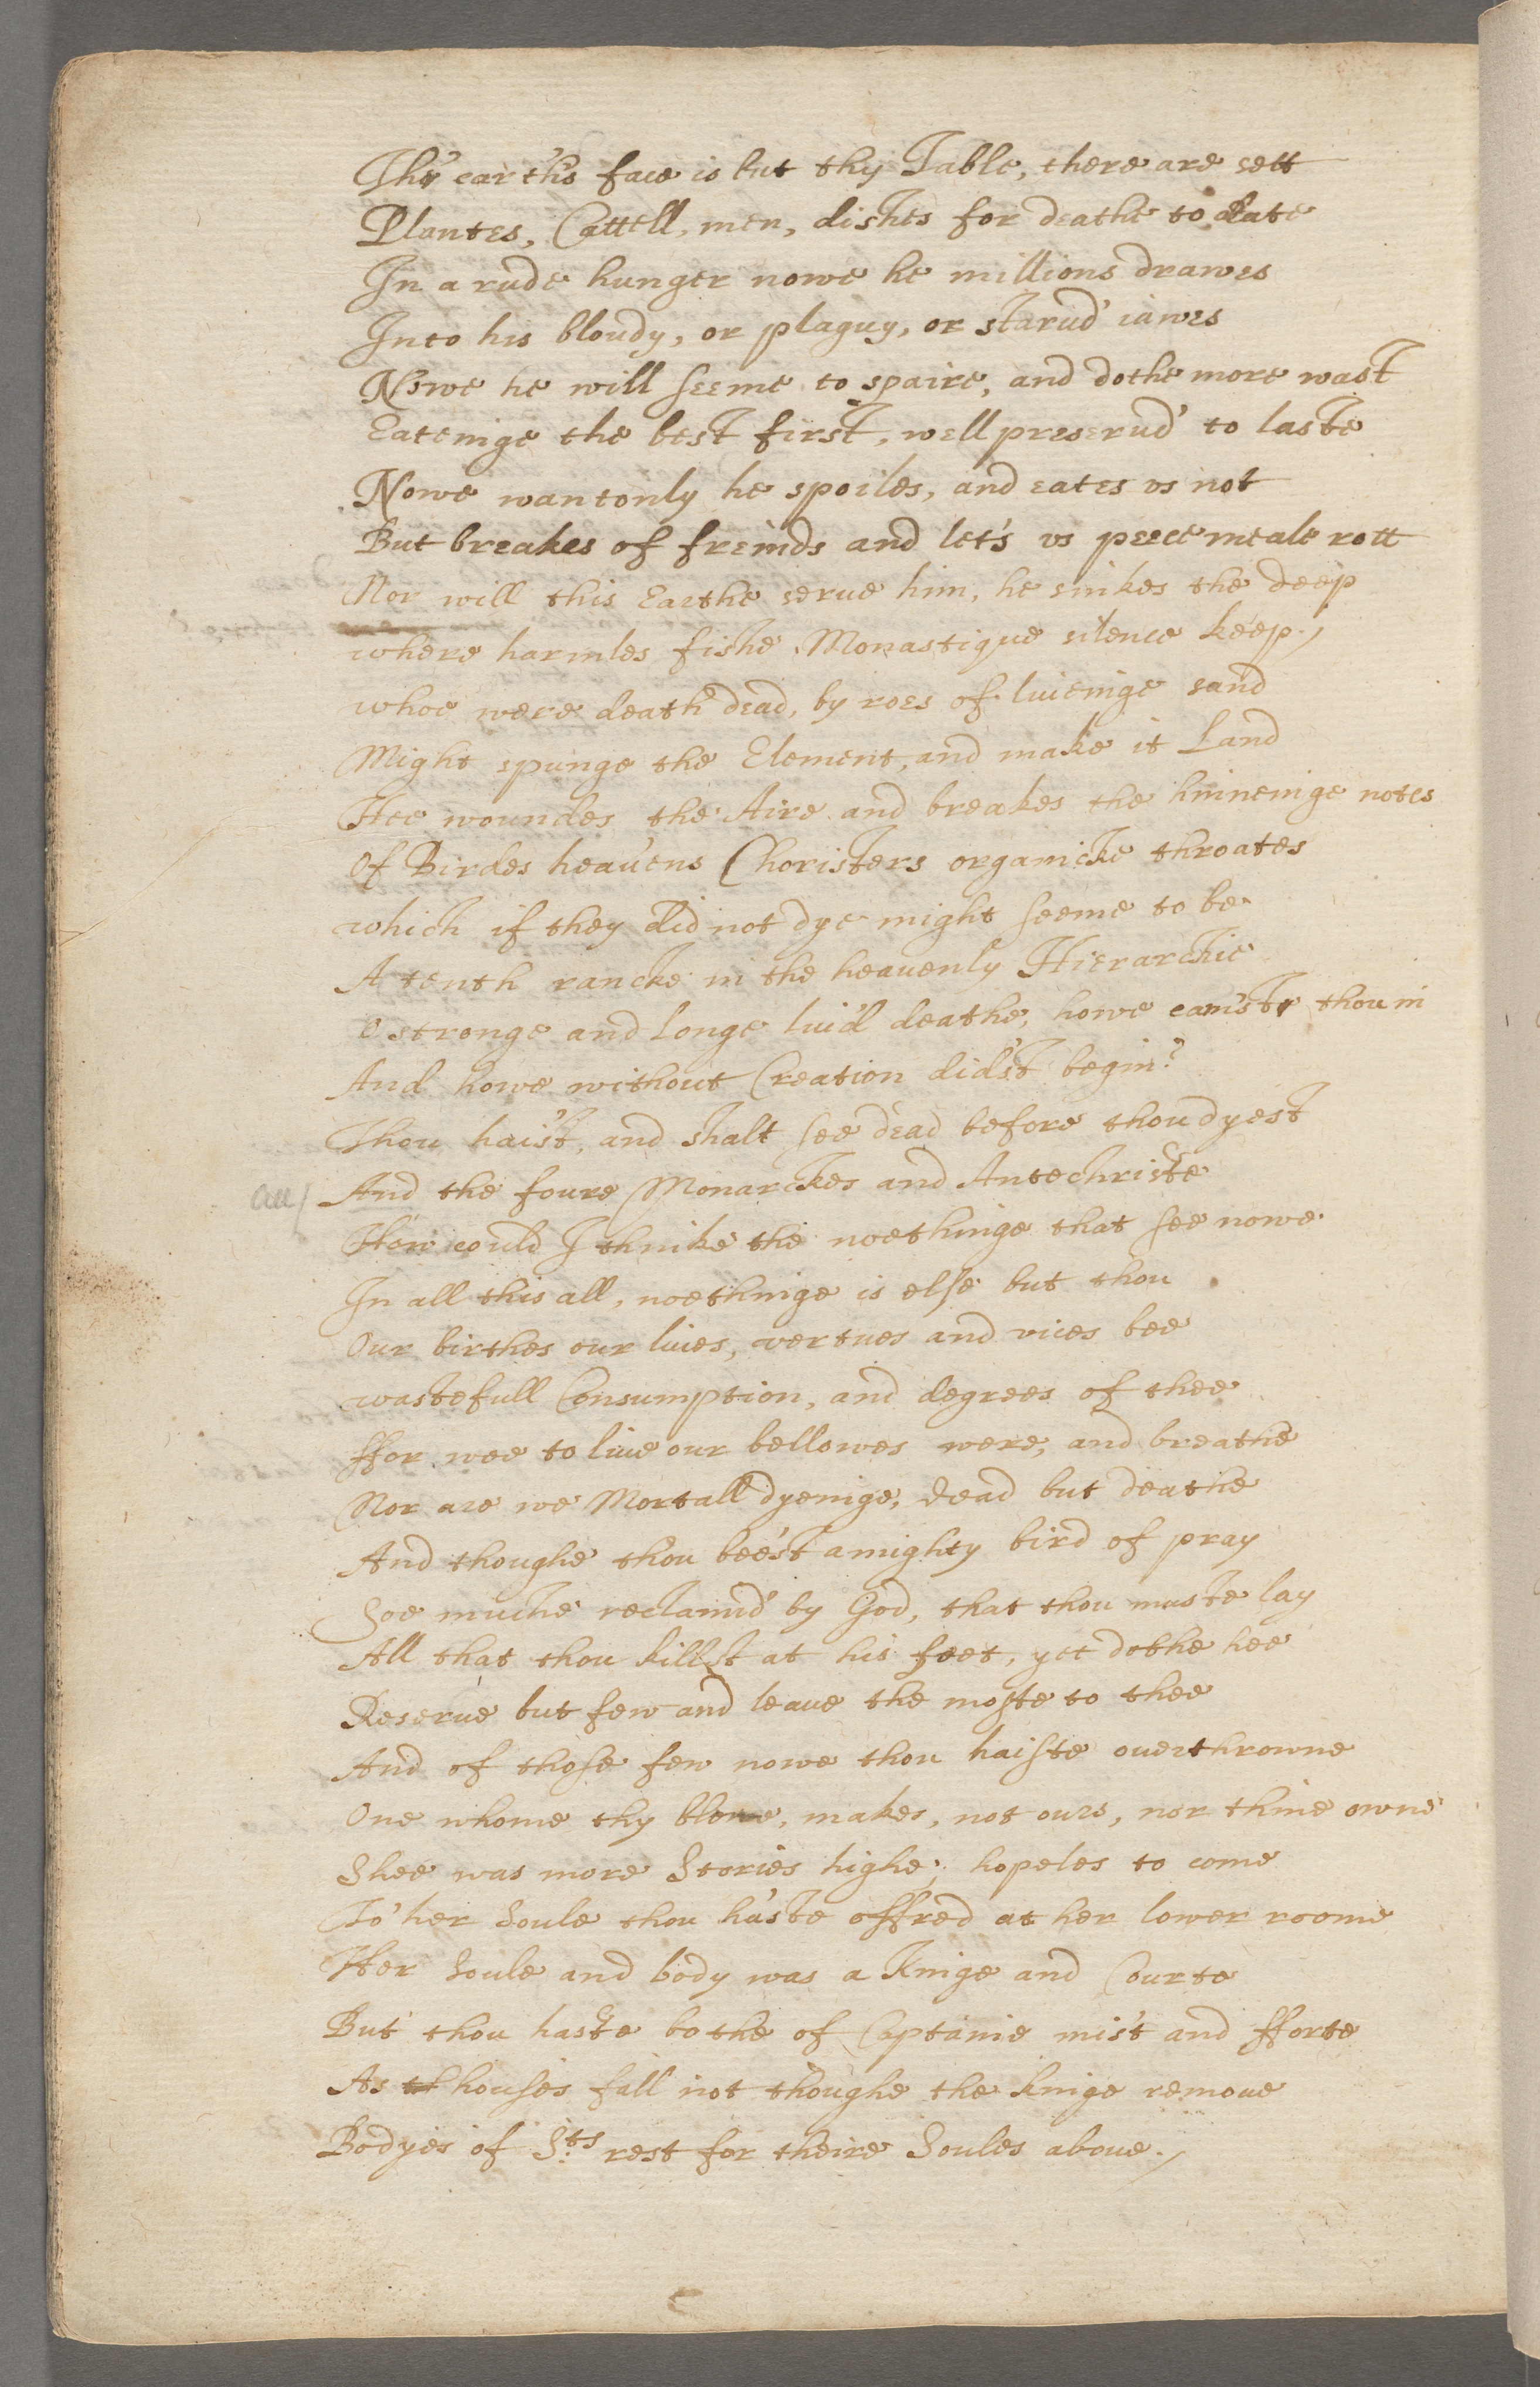 Thy earth's face is but thy Table, there are sett
Plantes, Cattell, men, dishes for deathe to eate
In a rude hunger nowe he millions drawes
Into his bloudy, or plaguy, or starud' iawes
Nowe he will seeme to spaire, and dothe more wast
Eateinge the best first, well preserud' to laste
Nowe wantonly he spoiles, and eates vs not
But breakes of freinds and let's vs peece meale rott
Nor will this Earthe serue him, he sinkes the deep
where harmles fishe Monastique silence keep./
whoe were death dead, by roes of liueinge sand
Might spunge the Element, and make it Land
Hee woundes the Aire and breakes the himneinge notes
Of Birdes heau'ens Choristers organicke throates
which if they did not dye might seeme to be
A tenth rancke in the heauenly Hierarchie
O stronge and longe liu'd deathe, howe cam'st thou in
And howe without Creation did'st begin?
Thou hais't, and shalt see dead before thou dyest
All/ And the foure Monarckes and Antechriste
How could I thinke the noethinge that see nowe
In all this all, noethinge is else but thou
Our birthes our liues, vertues and vices bee
wastefull Consumption, and degrees of thee
ffor wee to liue our bellowes were, and breathe
Nor are we Mortall dyeinge, dead but deathe
And thoughe thou bee'st a mighty bird of pray
Soe muche reclaimd' by God, that thou muste lay
All that thou killst at his feet, yet dothe hee
Reserue but few and leaue the moste to thee
And of those few nowe thou haiste ouerthrowne
One whome thy blowe, makes, not ours, nor thine owne
Shee was more Stories highe, hopeles to come
To'her Soule thou ha'ste offred at her lower roome
Her Soule and body was a Kinge and Courte
But thou haste bothe of Captaine mis't and fforte
As houses fall not thoughe the Kinge remoue
Bodyes of Sts rest for theire Soules aboue./